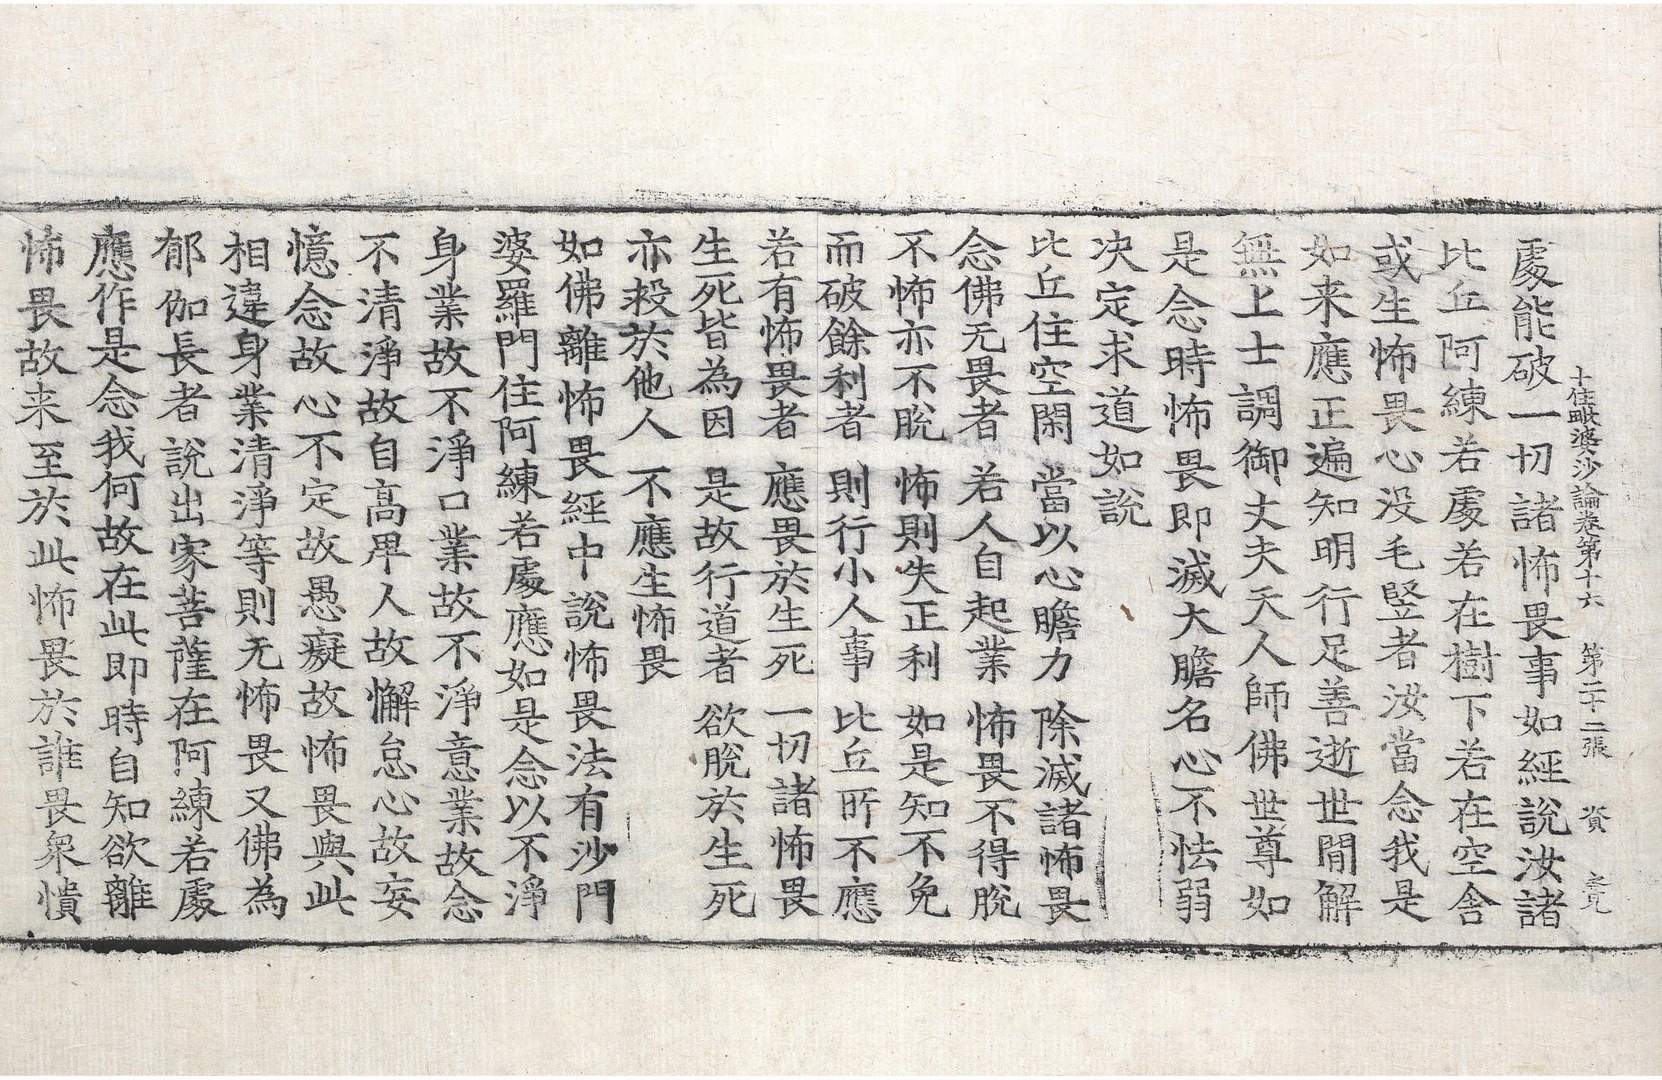 十住毗婆沙論卷第十六 第二十二張 資
處能破一切諸怖畏事如經說汝諸
比丘阿練若處若在樹下若在空舍
或生怖畏心没毛竪者汝當念我是
如来應正遍知明行足善逝世間解
無上士調御丈夫天人師佛世尊如
是念時怖畏即滅大膽名心不怯弱
決定求道如說
比丘住空閑 當以心膽力 除滅諸怖畏
念佛无畏者 若人自起業 怖畏不得脫
不怖亦不脫 怖則失正利 如是知不免
而破餘利者 則行小人事 比丘所不應
若有怖畏者 應畏於生死 一切諸怖畏
生死皆為因 是故行道者 欲脫於生死
亦救於他人 不應生怖畏
如佛離怖畏經中說怖畏法有沙門
婆羅門住阿練若處應如是念以不淨
身業故不淨口業故不淨意業故念
不清淨故自高卑人故懈怠心故妄
憶念故心不定故愚癡故怖畏與此
相違身業清淨等則无怖畏又佛為
郁伽長者說出家菩薩在阿練若處
應作是念我何故在此即時自知欲離
怖畏故来至於此怖畏於誰畏衆憒